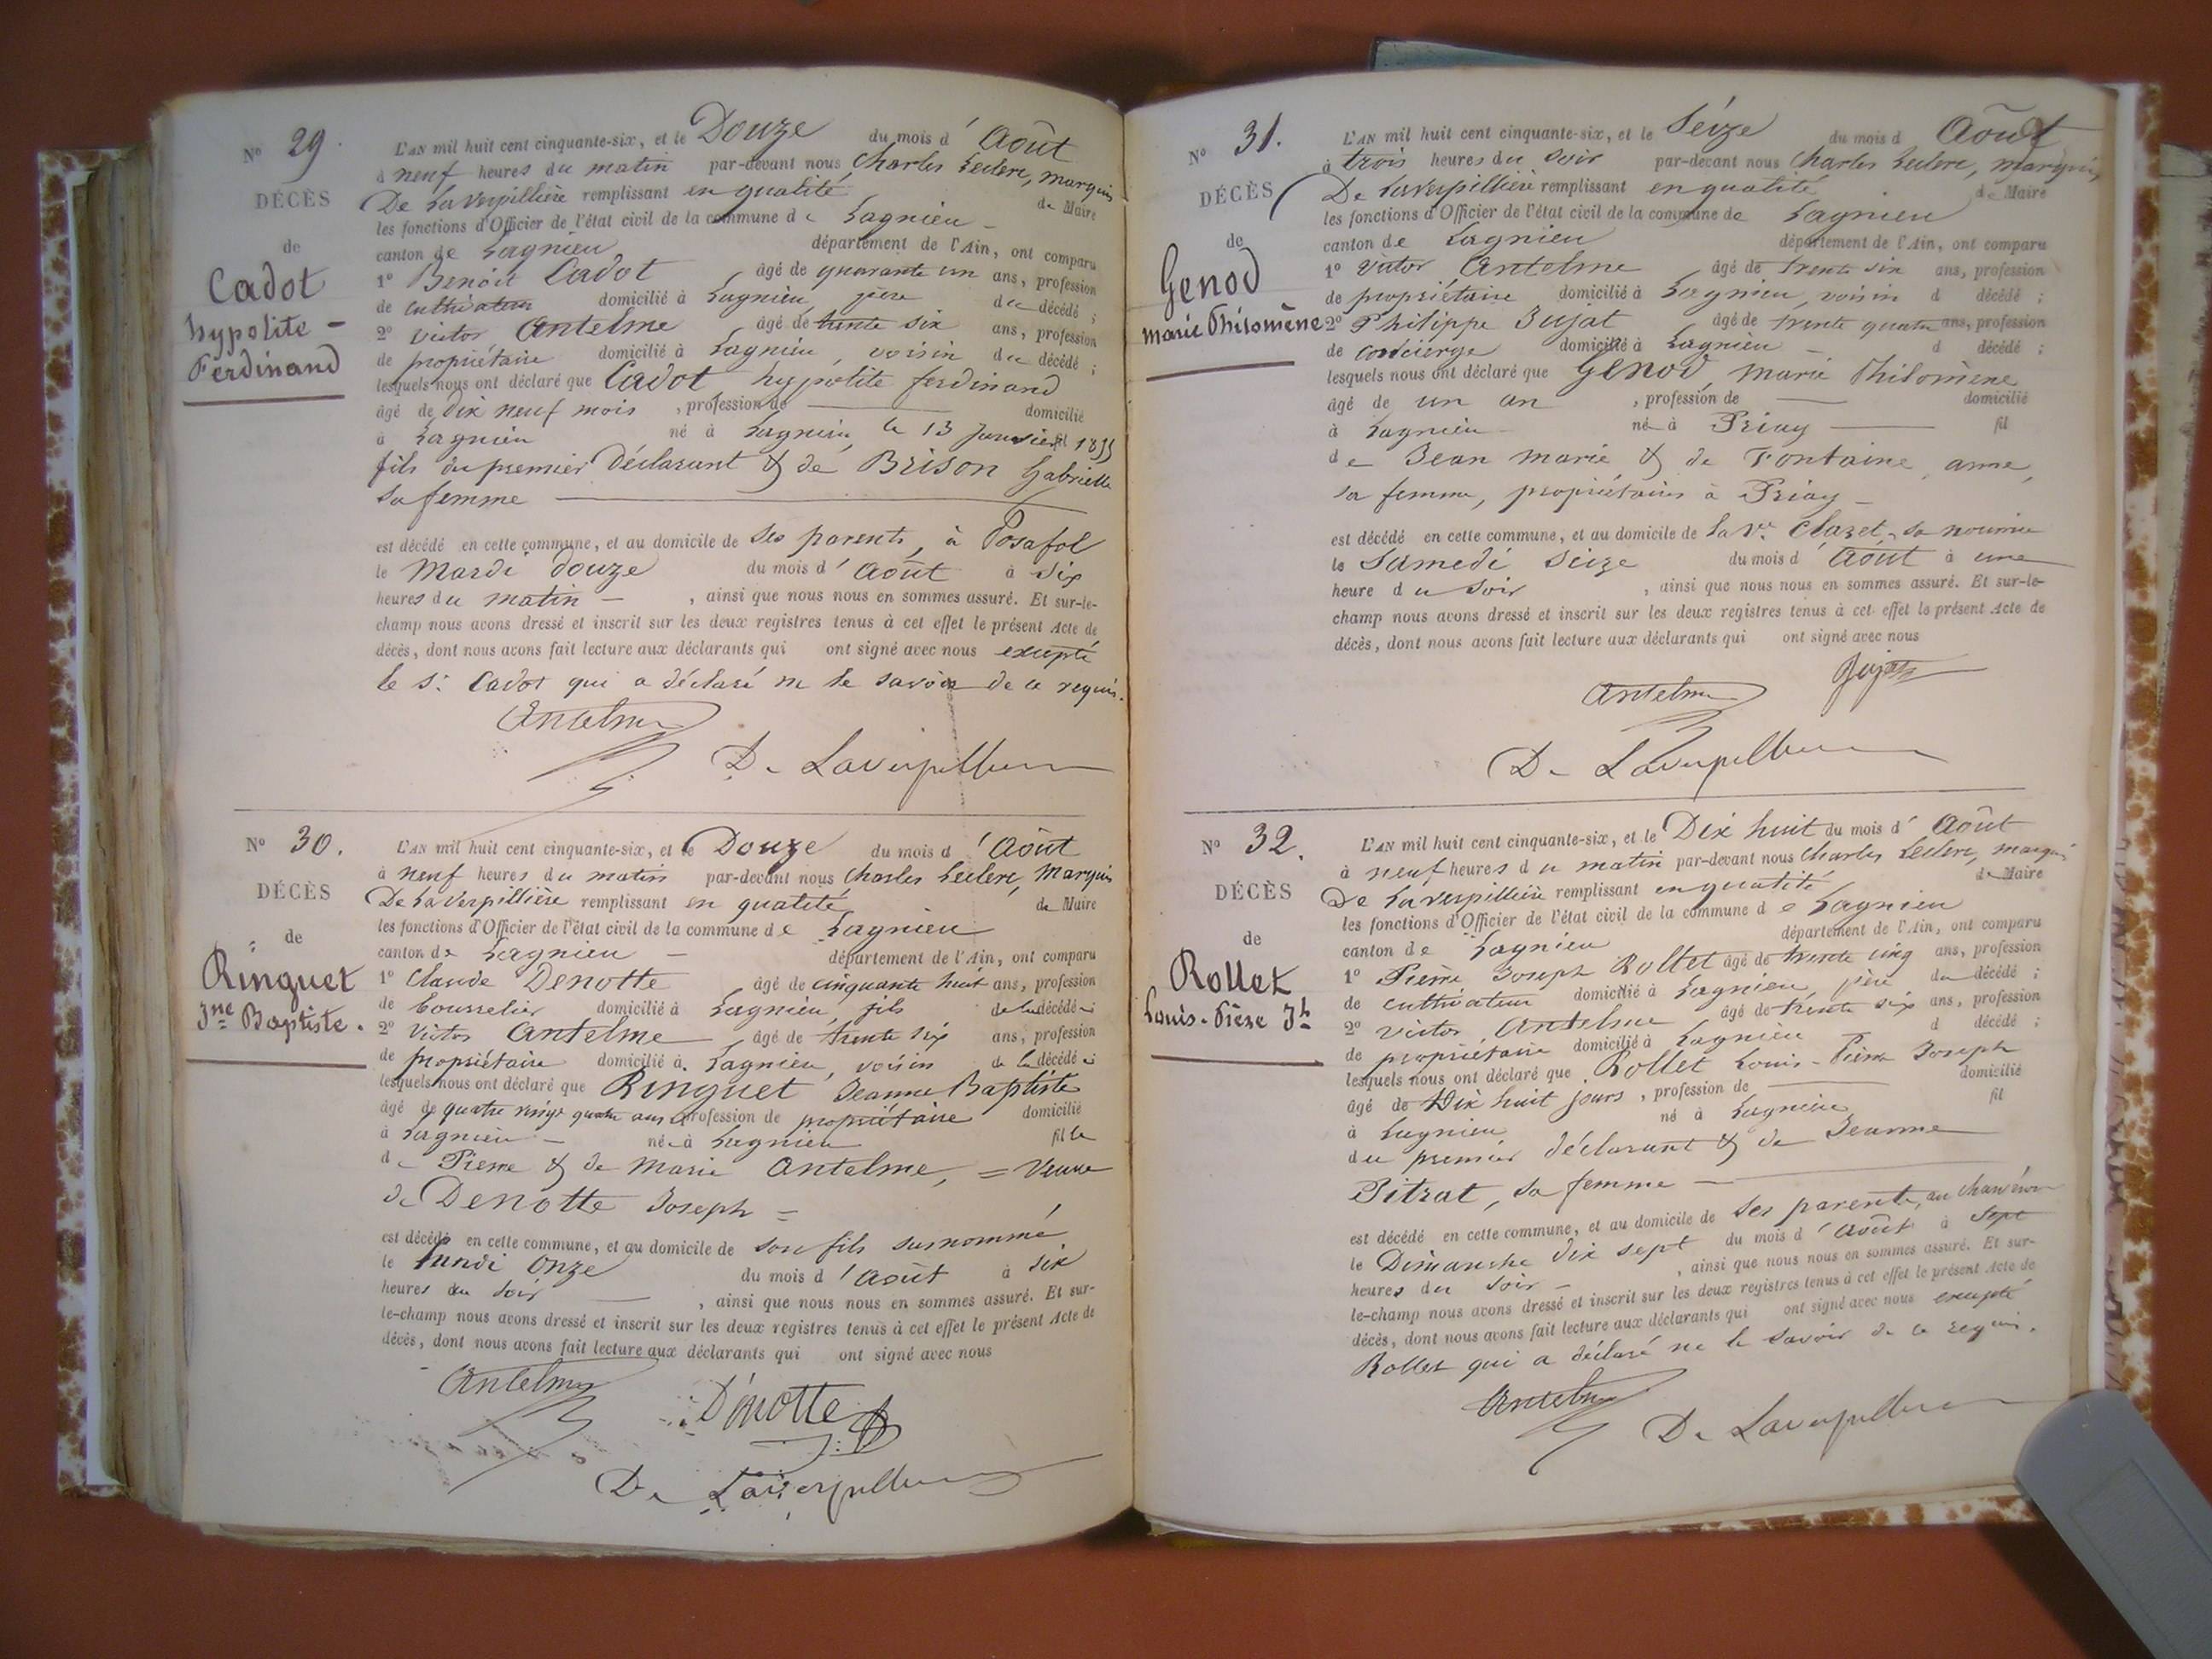 N° 29.
DÉCÈS
de
Cadot
hypolite -
Ferdinand
L'AN mil huit cent cinquante-six, et le Douze du mois d'Août
à neuf heures du matin par-devant nous Charles Leclerc, marquis
De Laverpillière remplissant en qualité de Maire
les fonctions d'Officier de l'état civil de la commune de Lagnieu -
canton de Lagnieu département de l'Ain, ont comparu
1° Benoit Cadot âgé de quarante un ans, profession
de cultivateur domicilié à Lagnieu, père du décédé ;
2° Victor Antelme âgé de trente six ans, profession
de propriétaire domicilié à Lagnieu, voisin du décédé ;
lesquels nous ont déclaré que Cadot hypolite ferdinand
âgé de Dix neuf mois, profession de — domicilié
à Lagnieu né à Lagnieu, le 13 Janvier fil 1855
fils du premier Déclarant & de Brison Gabrielle
sa femme —
est décédé en cette commune, et au domicile de ses parents, à Posafol
le Mardi douze du mois d'Août à six
heures du matin -, ainsi que nous nous en sommes assuré. Et sur-le-
champ nous avons dressé et inscrit sur les deux registres tenus à cet effet le présent Acte de
décès, dont nous avons fait lecture aux déclarants qui ont signé avec nous excepté
le s. Cadot qui a déclaré ne le savoir de ce requis.
Antelme
De Laverpillière
N° 30.
DÉCÈS
de
Ringuet
Jne Baptiste.
L'AN mil huit cent cinquante-six, et le Douze du mois d'Août
à neuf heures du matin par-devant nous Charles Leclerc, Marquis
De Laverpillière remplissant en qualité de Maire
les fonctions d'Officier de l'état civil de la commune de Lagnieu
canton de Lagnieu - département de l'Ain, ont comparu
1° Claude Denotte âgé de cinquante huit ans, profession
de bourrelier domicilié à Lagnieu, fils de la décédée ;
2° Victor Antelme âgé de trente six ans, profession
de propriétaire domicilié à Lagnieu, voisin de la décédée ;
lesquels nous ont déclaré que Ringuet Jeanne Baptiste
âgé de quatre vingt quatre ans profession de propriétaire domicilié
à Lagnieu - née à Lagnieu fille
de Pierre & de Marie Antelme, = Veuve
de Denotte Joseph =
est décédé en cette commune, et au domicile de son fils surnommé
le lundi onze du mois d'Août à six
heures du soir —, ainsi que nous nous en sommes assuré. Et sur-
le-champ nous avons dressé et inscrit sur les deux registres tenus à cet effet le présent Acte de
décès, dont nous avons fait lecture aux déclarants qui ont signé avec nous
Antelme
Dénotte
De Laverpillière
N° 31.
DÉCÈS
de
Genod
marie Philomène
L'AN mil huit cent cinquante-six, et le Seize du mois d Août
à trois heures du soir par-devant nous Charles Leclerc, marquis,
De Laverpillière remplissant en qualité de Maire
les fonctions d'Officier de l'état civil de la commune de Lagnieu
canton de Lagnieu département de l'Ain, ont comparu
1° Victor Antelme âgé de trente six ans, profession
de propriétaire domicilié à Lagnieu, voisin d décédé ;
2° Philippe Jujat âgé de trente quatre ans, profession
de concierge domicilié à Lagnieu - d décédé ;
lesquels nous ont déclaré que Genod, Marie Philomène
âgé de un an, profession de — domicilié
à Lagnieu - née à Priay — fil
de Jean marie & de Fontaine anne,
sa femme, propriétaires à Priay -
est décédé en cette commune, et au domicile de la Ve Claret, sa nourrice
le Samedi Seize du mois d'Août à une
heure du soir, ainsi que nous nous en sommes assuré. Et sur-le-
champ nous avons dressé et inscrit sur les deux registres tenus à cet effet le présent Acte de
décès, dont nous avons fait lecture aux déclarants qui ont signé avec nous
Jujat
Antelme
De Laverpillière
N° 32.
DÉCÈS
de
Rollet
Louis-Pière Jh
L'AN mil huit cent cinquante-six, et le Dix huit du mois d'Août
à neuf heures du matin par-devant nous Charles Leclerc, marquis
De Laverpillière remplissant en qualité de Maire
les fonctions d'Officier de l'état civil de la commune de Lagnieu
canton de Lagnieu département de l'Ain, ont comparu
1° Pierre Joseph Rollet âgé de trente cinq ans, profession
de cultivateur domicilié à Lagnieu, père du décédé ;
2° Victor Antelme âgé de trente six ans, profession
de propriétaire domicilié à Lagnieu d décédé ;
lesquels nous ont déclaré que Rollet Louis-Pierre Joseph
âgé de Dix huit jours, profession de — domicilié
à Lagnieu né à Lagnieu fil
du premier déclarant & de Jeanne
Pitrat, sa femme —
est décédé en cette commune, et au domicile de ses parents, au
le Dimanche dix sept du mois d'Août à sept
heures du soir -, ainsi que nous nous en sommes assuré. Et sur-
le-champ nous avons dressé et inscrit sur les deux registres tenus à cet effet le présent Acte de
décès, dont nous avons fait lecture aux déclarants qui ont signé avec nous excepté
Rollet qui a déclaré ne le savoir de ce requis.
Antelme
De Laverpillière